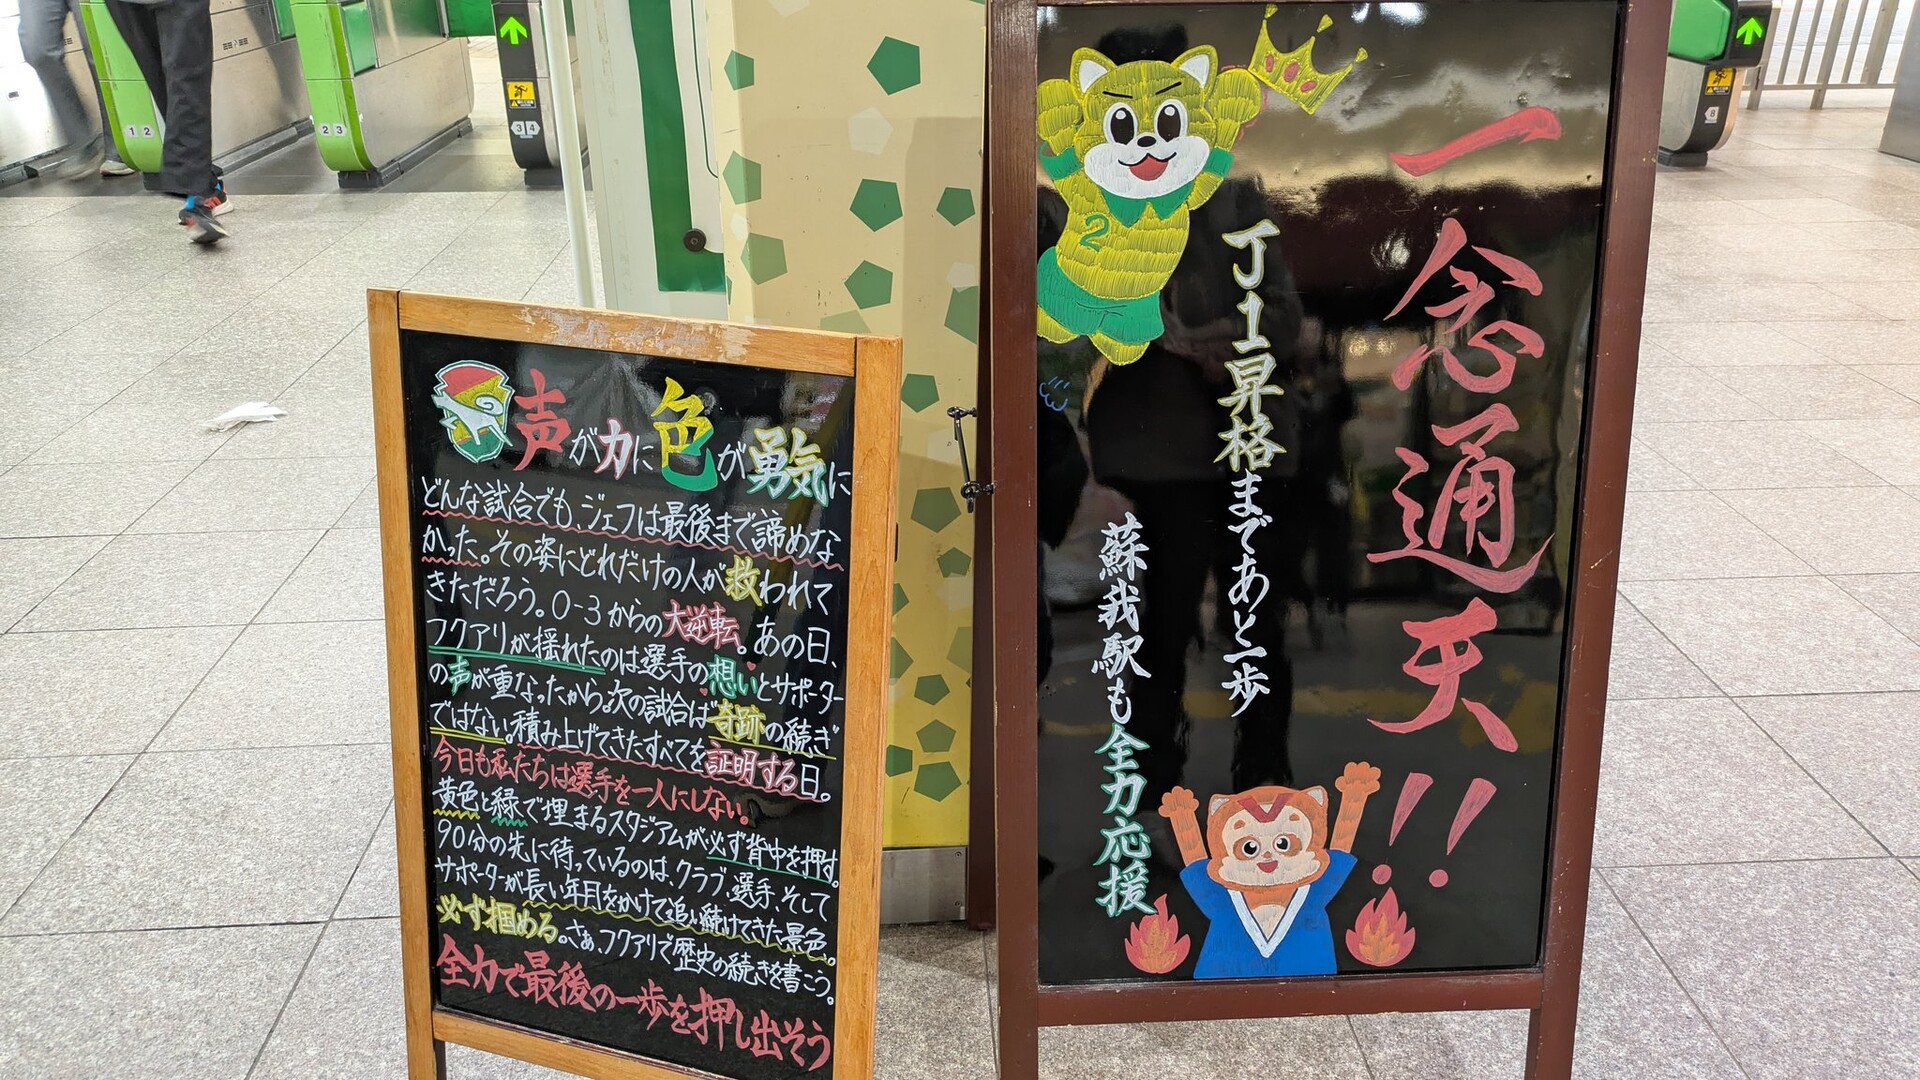 声が力に色が勇気に
どんな試合でも、ジェフは最後まで諦めな
かった。その姿にどれだけの人が救われて
きただろう。0-3からの大逆転。あの日、
フクアリが揺れたのは選手の想いとサポーター
の声が重なったから。次の試合は奇跡の続き
ではない。積み上げてきたすべてを証明する日。
今日も私たちは選手を一人にしない。
黄色と緑で埋まるスタジアムが必ず背中を押す。
90分の先に待っているのは、クラブ、選手、そして
サポーターが長い年月をかけて追い続けてきた景色。
必ず掴める。さぁ、フクアリで歴史の続きを書こう。
全力で最後の一歩を押し出そう
一念通天!!
J1昇格まであと一歩
蘇我駅も全力応援
2
1 2
2 3
3 4
8